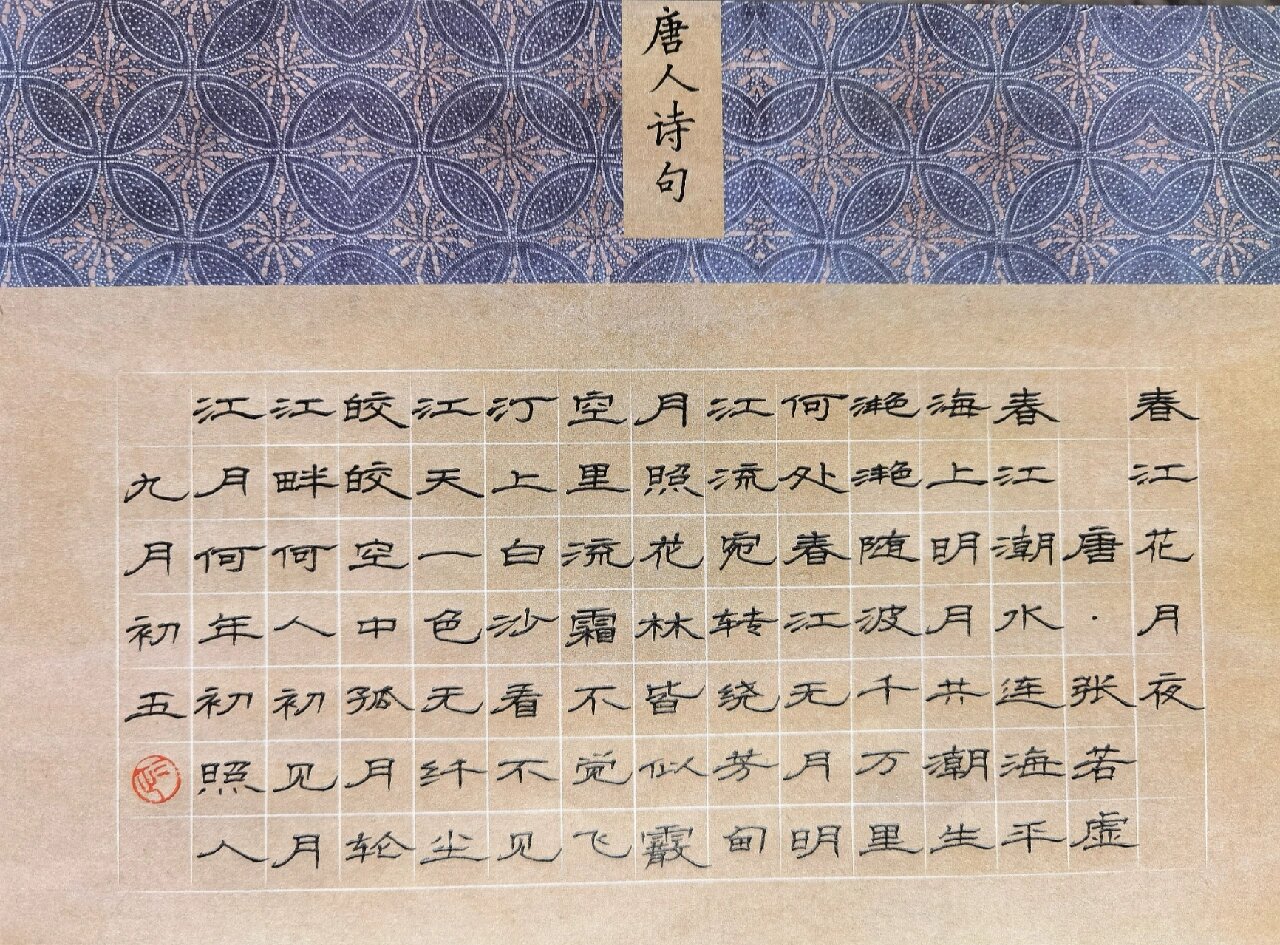 唐人诗句
春江花月夜
唐·张若虚
春江潮水连海平
海上明月共潮生
滟滟随波千万里
何处春江无月明
江流宛转绕芳甸
月照花林皆似霰
空里流霜不觉飞
汀上白沙看不见
江天一色无纤尘
皎皎空中孤月轮
江畔何人初见月
江月何年初照人
九月初五